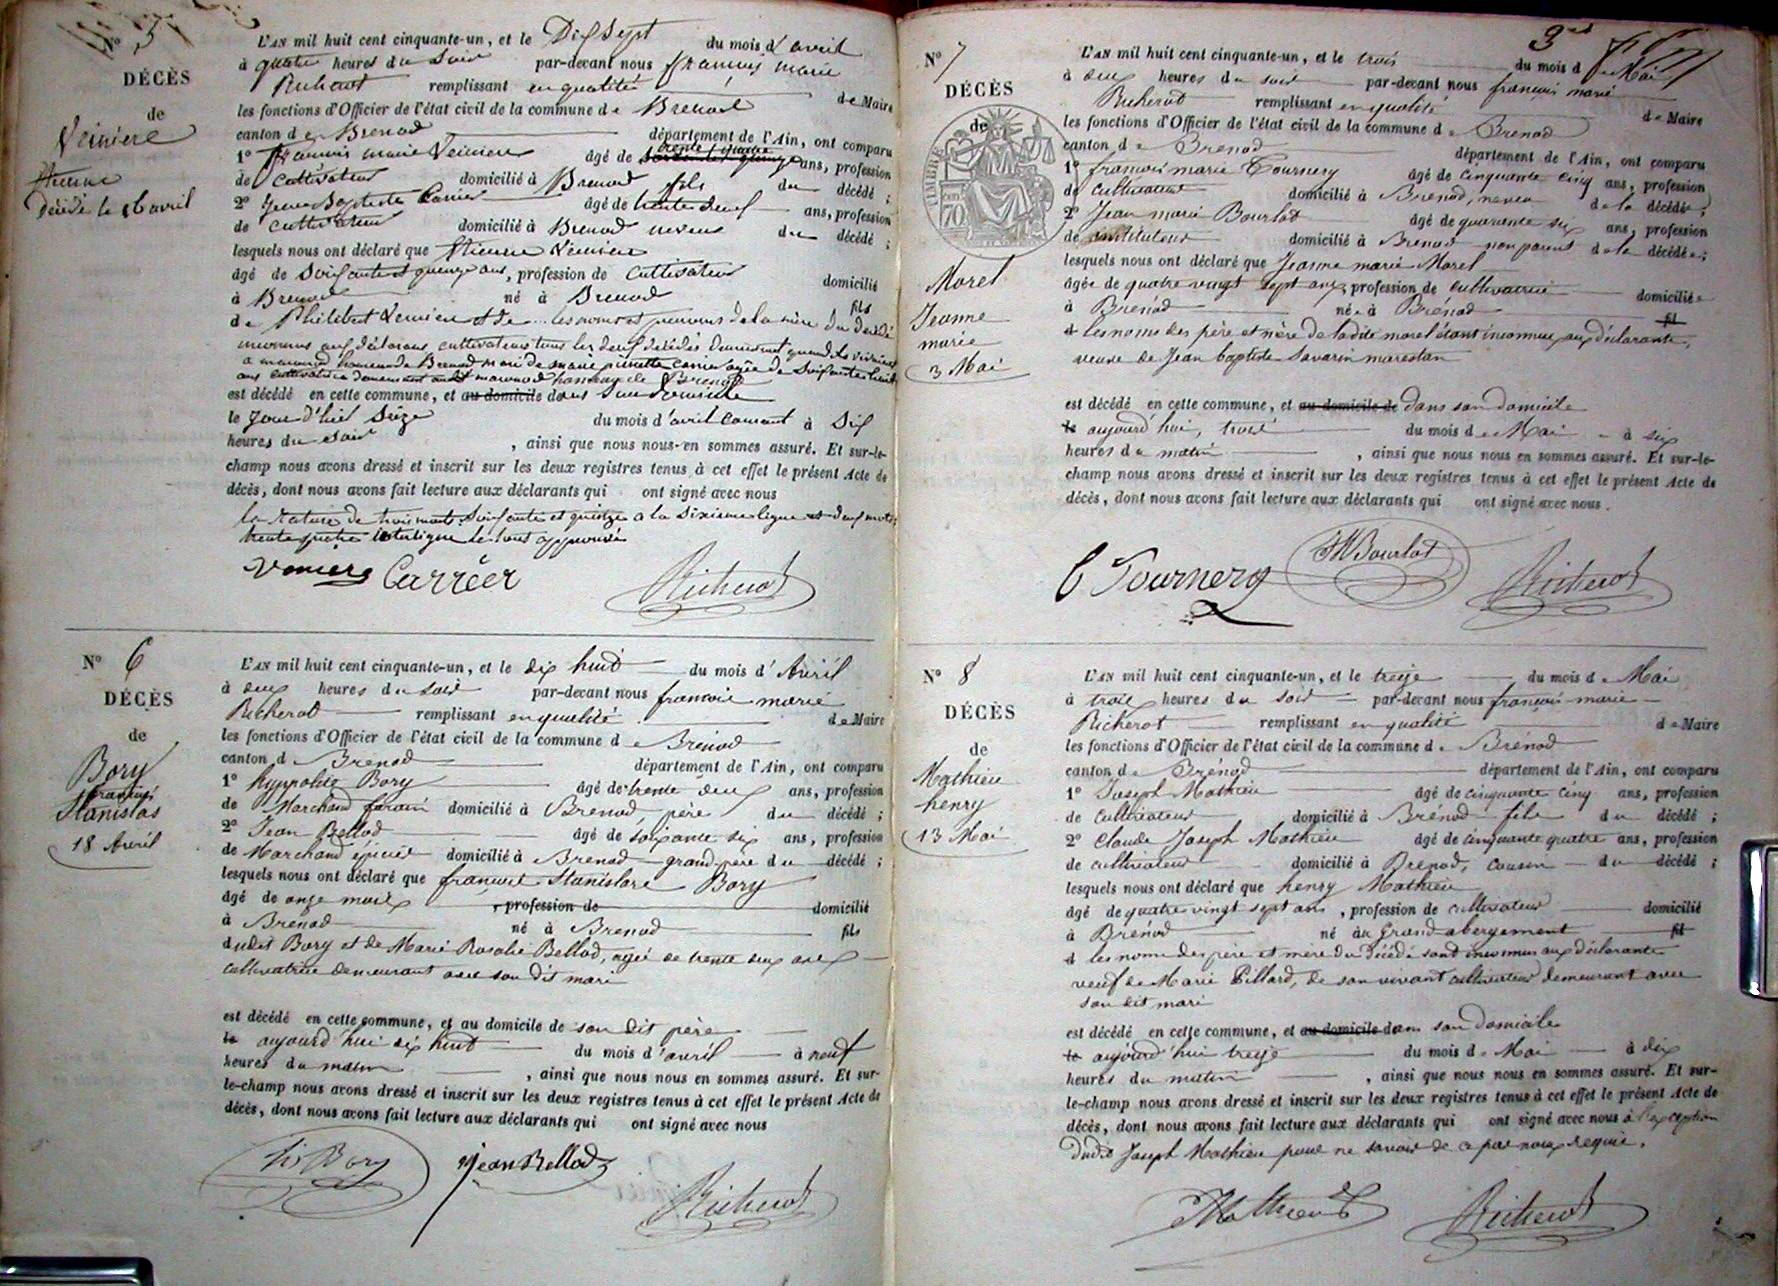 N° 5
DÉCÈS
de
Veiniere
Etienne
Décédé le 16 avril
L'AN mil huit cent cinquante-un, et le Dix Sept du mois d'avril
à quatre heures du Soir par-devant nous françois marie
Richerot remplissant en qualité de Maire
les fonctions d'Officier de l'état civil de la commune de Brenod
canton de Brenod département de l'Ain, ont comparu
1° françois marie Veiniere âgé de trente quatre ans, profession
de cultivateur domicilié à Brenod fils du décédé ;
2° Jean Baptiste Carrier âgé de trente deux ans, profession
de cultivateur domicilié à Brenod neveu du décédé ;
lesquels nous ont déclaré que Etienne Veiniere
âgé de Soixante et quinze ans, profession de cultivateur domicilié
à Brenod né à Brenod fils
de Philibert Veiniere et de les noms et prenoms de la mère du decédé
inconnus aux déclarans, cultivateurs tous les deux décédés
hameau de Brenod mari de marie pierrette Carrier agée de Soixante huit
ans cultivatrice demeurant hameau de Brenod
est décédé en cette commune, et au domicile dans Son domicile
le Jour d'hier Seize du mois d'avril Courant à Six
heures du Soir , ainsi que nous nous-en sommes assuré. Et sur-le-
champ nous avons dressé et inscrit sur les deux registres tenus à cet effet le présent Acte de
décès, dont nous avons fait lecture aux déclarants qui ont signé avec nous
la rature de trois mots Soixante et quinze a la Sixieme ligne et deux mots
trente quatre interligne dessus approuvés
Veniere Carrier Richerot
N° 6
DÉCÈS
de
Bory
françois
Stanislas
18 Avril
L'AN mil huit cent cinquante-un, et le dix huit du mois d'Avril
à deux heures du soir par-devant nous francois marie
Richerot remplissant en qualité de Maire
les fonctions d'Officier de l'état civil de la commune de Brénod
canton d Brenod département de l'Ain, ont comparu
1° hyppolite Bory âgé de trente deux ans, profession
de Marchand forain domicilié à Brenod, père du décédé ;
2° Jean Bellod âgé de soixante six ans, profession
de Marchand épicier domicilié à Brenod grand-père du décédé ;
lesquels nous ont déclaré que françois Stanislas Bory
âgé de onze mois , profession de domicilié
à Brenod né à Brenod fils
dudit Bory et de Marie Rosalie Bellod, agée de trente deux ans
cultivatrice demeurant avec son dit mari
est décédé en cette commune, et au domicile de son dit père
le aujourd'hui dix huit du mois d'avril à neuf
heures du matin , ainsi que nous nous en sommes assuré. Et sur-
le-champ nous avons dressé et inscrit sur les deux registres tenus à cet effet le présent Acte de
décès, dont nous avons fait lecture aux déclarants qui ont signé avec nous
Bory Jean Bellod Richerot
N° 7
DÉCÈS
de
TIMBRE
70
Morel
Jeanne
marie
3 Mai
L'AN mil huit cent cinquante-un, et le trois du mois de Mai
à deux heures du soir par-devant nous françois marie
Richerot remplissant en qualité de Maire
les fonctions d'Officier de l'état civil de la commune de Brenod
canton de Brénod département de l'Ain, ont comparu
1° francois marie Tournery âgé de cinquante cinq ans, profession
de cultivateur domicilié à Brenod, neveu de la décédée ;
2° Jean marie Bourlot âgé de quarante six ans, profession
de instituteur domicilié à Brenod non parent de la décédée ;
lesquels nous ont déclaré que Jeanne marie Morel
âgée de quatre vingt sept ans, profession de cultivatrice domiciliée
à Brenod née à Brénod fil
d les noms des père et mère de ladite morel étant inconnus aux déclarants,
veuve de Jean baptiste Savarin marestan
est décédé en cette commune, et au domicile de dans son domicile
le aujourd'hui, trois du mois de Mai à six
heures du matin , ainsi que nous nous en sommes assuré. Et sur-le-
champ nous avons dressé et inscrit sur les deux registres tenus à cet effet le présent Acte de
décès, dont nous avons fait lecture aux déclarants qui ont signé avec nous.
Tournery JM Bourlot Richerot
N° 8
DÉCÈS
de
Mathieu
henry
13 Mai
L'AN mil huit cent cinquante-un, et le treize du mois de Mai
à trois heures du soir par-devant nous françois marie
Richerot remplissant en qualité de Maire
les fonctions d'Officier de l'état civil de la commune de Brénod
canton de Brénod département de l'Ain, ont comparu
1° Joseph Mathieu âgé de cinquante cinq ans, profession
de cultivateur domicilié à Brénod fils du décédé ;
2° Claude Joseph Mathieu âgé de cinquante quatre ans, profession
de cultivateur domicilié à Brenod, cousin du décédé ;
lesquels nous ont déclaré que henry Mathieu
âgé de quatre vingt sept ans , profession de cultivateur domicilié
à Brenod né au Grand abergement fil
d les noms des père et mère du décédé sont inconnus aux déclarants
veuf de Marie Billard, de son vivant cultivatrice demeurant avec
son dit mari
est décédé en cette commune, et au domicile dans son domicile
le aujourd'hui treize du mois de Mai à dix
heures du matin , ainsi que nous nous en sommes assuré. Et sur-
le-champ nous avons dressé et inscrit sur les deux registres tenus à cet effet le présent Acte de
décès, dont nous avons fait lecture aux déclarants qui ont signé avec nous à l'exception
dudit Joseph Mathieu pour ne savoir de ce par nous requis.
Mathieu Richerot